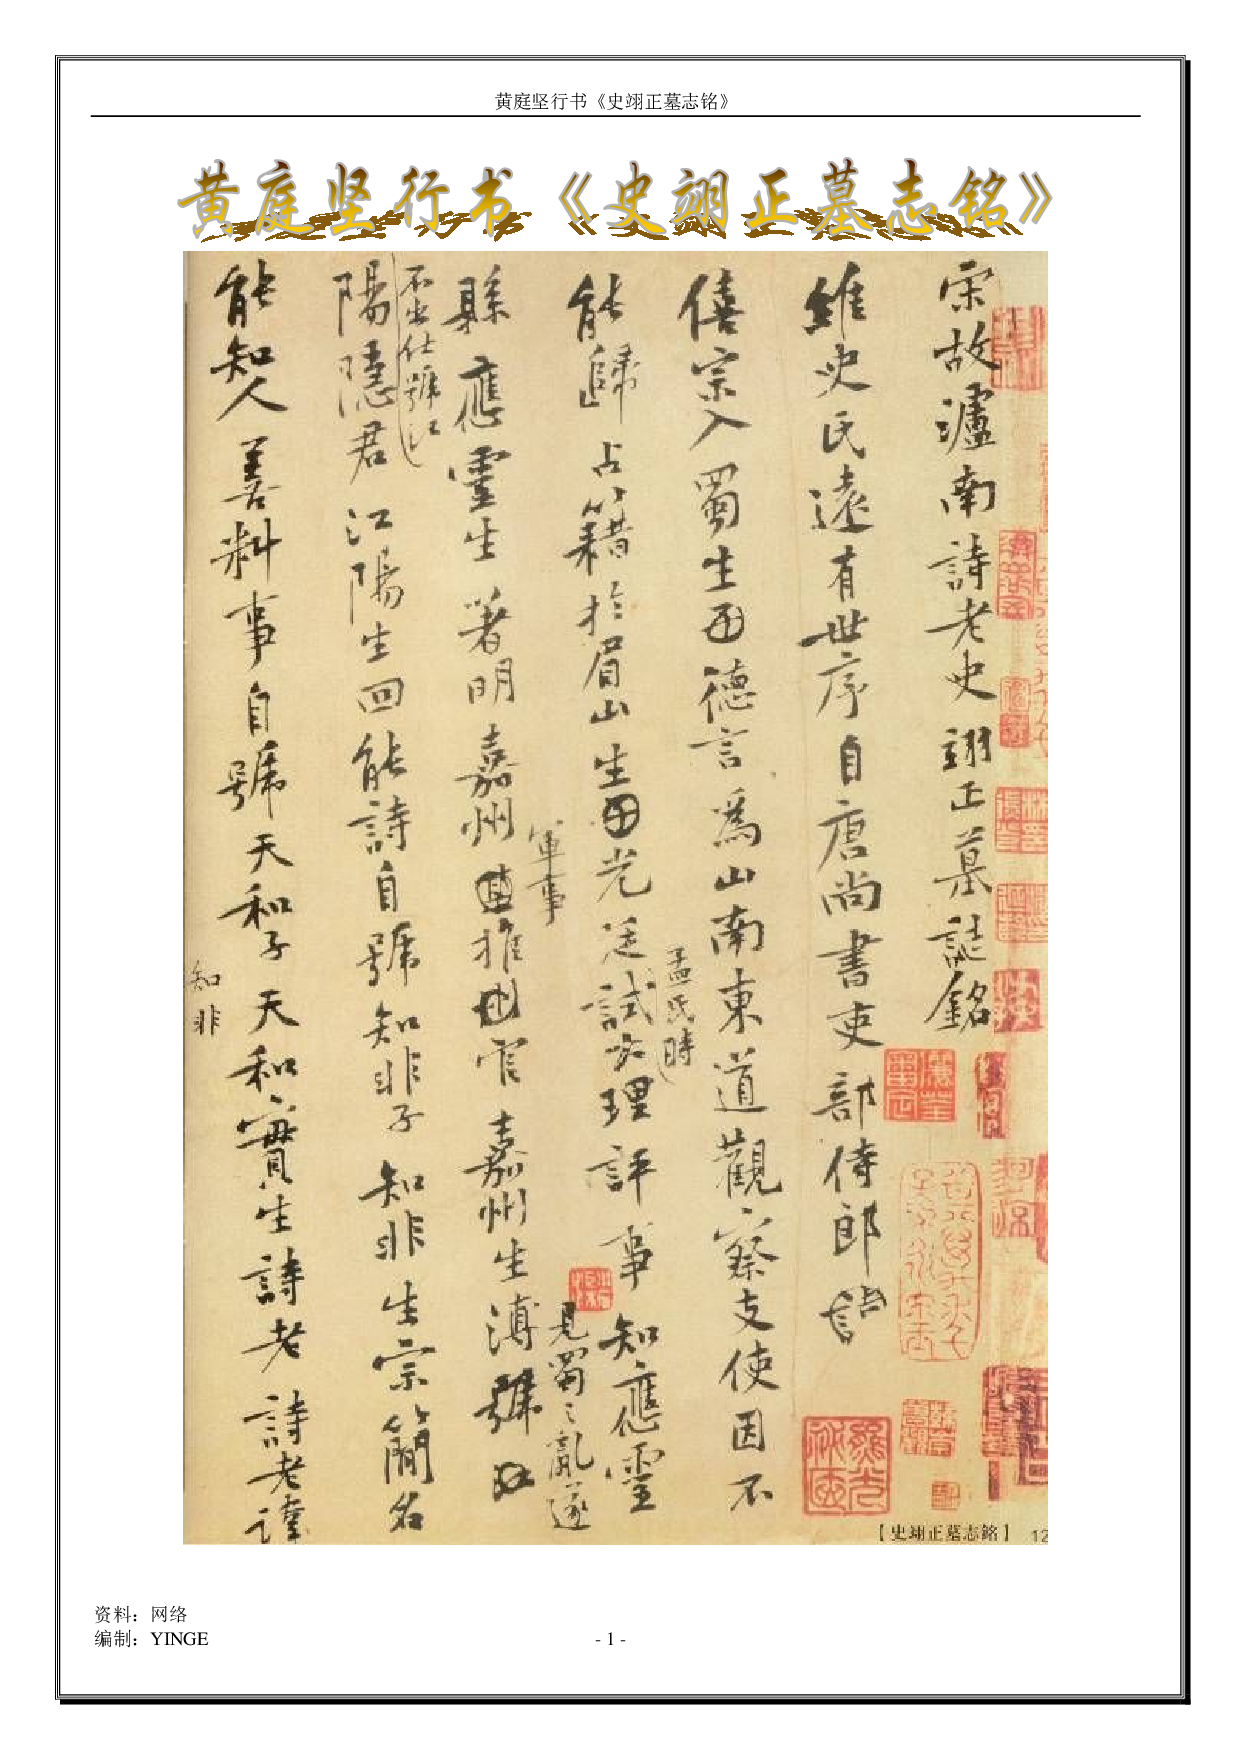 黄庭坚行书《史翊正墓志铭》
黄庭坚行书《史翊正墓志铭》
宋故瀘南詩老史翊正墓誌銘
維史氏遠有世序自唐尚書吏部侍郎
僖宗入蜀生德言爲山南東道觀察支使因不
能歸占籍於眉山生光廷試大理評事知應靈
孟氏時
見蜀之亂遂
縣應靈生著明嘉州推官嘉州生溥號
軍事
不出仕號江
陽隱君江陽生回能詩自號知非子知非生宗簡名
能知人善料事自號天和子天和實生詩老詩老諱
知非
【史翊正墓志銘】 12
资料：网络
编制：YINGE
- 1 -